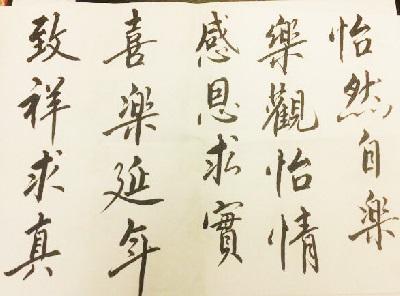 怡然自樂
樂觀怡情
感恩求實
喜樂延年
致祥求真